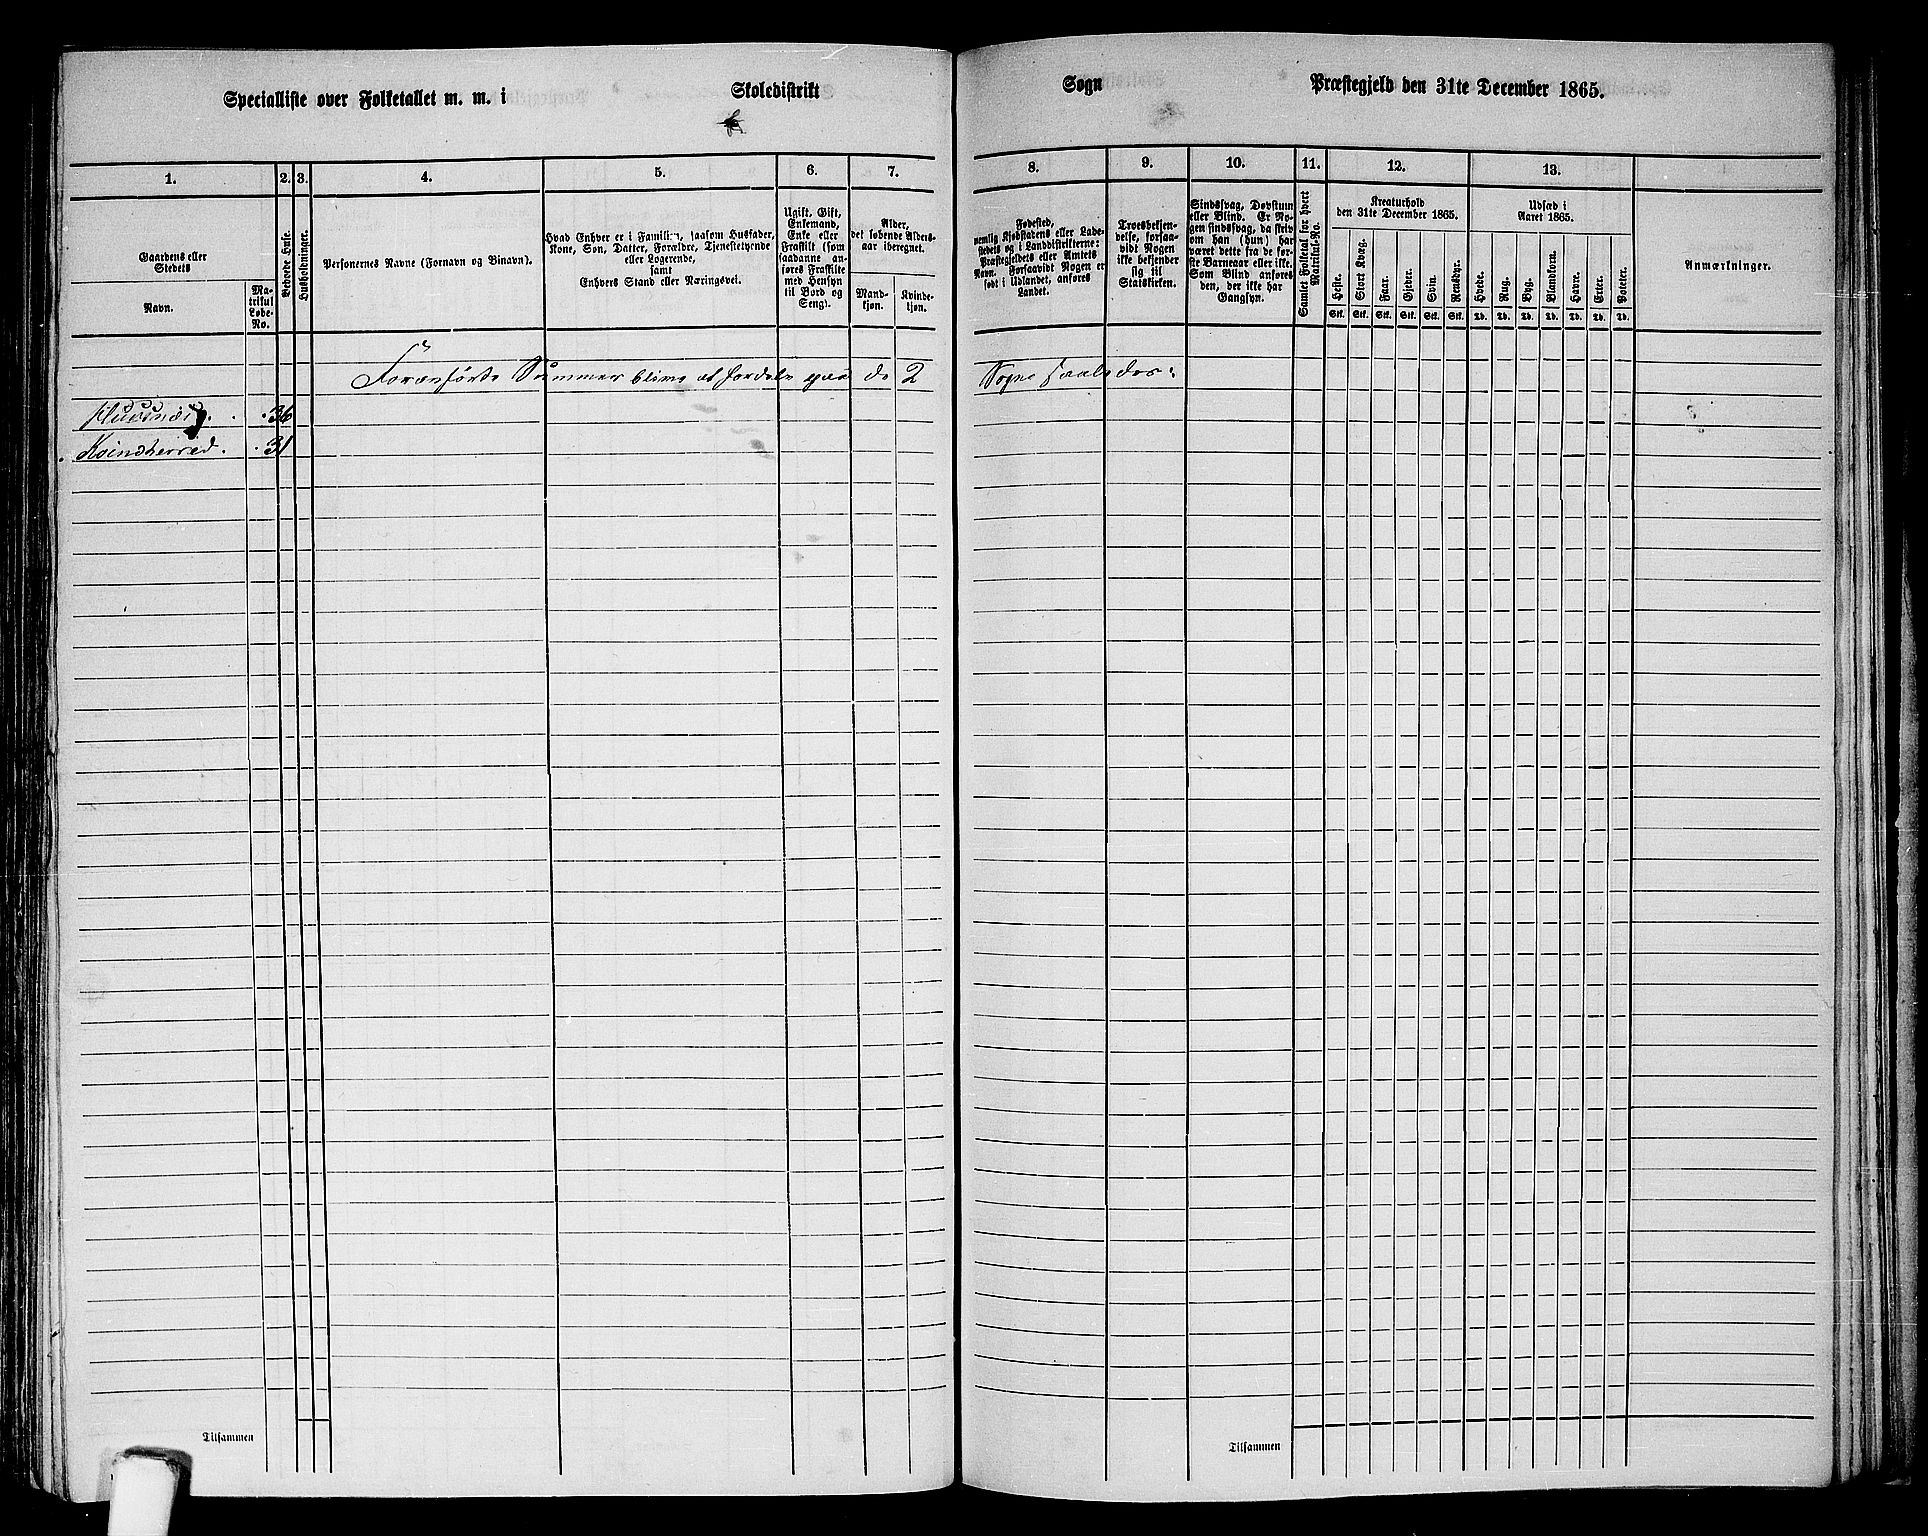 Specialliste over Folketallet m. m. i Skoledistrikt Sogn Præstegjeld den 31te December 1865.
1. 2. 3. 4. 5. 6. 7. 8. 9. 10. 11. 12. 13.
Gaardens eller
Stedets
Navn.
Ma-
trikul
Løbe-
No.
Beboede Huse.
Husholdninger.
Personernes Navne (Fornavn og Binavn).
Hvad Enhver er i Familien, saasom Husfader,
Kone, Søn, Datter, Forældre, Tjenestetyende
eller Logerende,
samt
Enhvers Stand eller Næringsvei.
Ugift, Gift,
Enkemand,
Enke eller
Fraskilt (som
saadanne an-
føres Fraskilte
med Hensyn
til Bord og
Seng).
Alder,
det løbende Alders-
aar iberegnet.
Mand-
kjøn.
Kvinde-
kjøn.
Fødested,
nemlig Kjøbstadens eller Lade-
stedets og i Landdistrikterne:
Præstegjeldets eller Amtets
Navn. Forsaavidt Nogen er
født i Udlandet, anføres
Landet.
Troesbekjen-
delse, forsaa-
vidt Nogen
ikke bekjender
sig til
Statskirken.
Sindssvag, Døvstum
eller Blind. Er No-
gen sindssvag, da skriv
om han (hun) har
været dette fra de før-
ste Barneaar eller ikke.
Som Blind anføres
den, der ikke har
Gangsyn.
Samlet Folketal for hvert
Matrikul-No.
Kreaturhold
den 31te December 1865.
Heste.
Stort Kvæg.
Faar.
Gjeder.
Svin.
Rensdyr.
Stk. Stk. Stk. Stk. Stk. Stk.
Udsæd i
Aaret 1865.
Hvede.
Rug.
Byg.
Blandkorn.
Havre.
Erter.
Poteter.
Td. Td. Td. Td. Td. Td. Td.
Anmærkninger.
Foranførte Summer blive at fordele paa de 2 Sogne saaledes:
36
Kvindherred. 31
Tilsammen Tilsammen